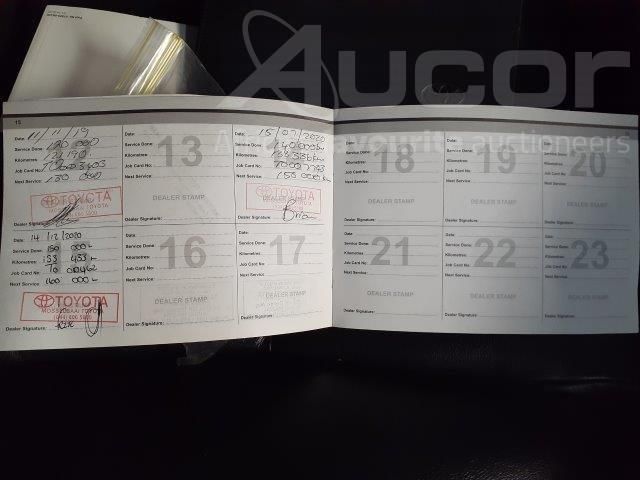 Aucor
auctioneers
15
Date: 11/11/19
Service Done: 120 000
Kilometres:
Job Card No:
Next Service: 130 000
TOYOTA
Dealer Signature:
Date:
Service Done:
Kilometres:
Job Card No:
Next Service:
13
DEALER STAMP
Dealer Signature:
Date: 15/07/2020
Service Done: 140 000
Kilometres:
Job Card No:
Next Service: 150 000
TOYOTA
Dealer Signature:
Date: 14/12/2020
Service Done: 150 000
Kilometres: 153 453
Job Card No:
Next Service: 160 000
TOYOTA
Dealer Signature:
Date:
Service Done:
Kilometres:
Job Card No:
Next Service:
16
DEALER STAMP
Dealer Signature:
Date:
Service Done:
Kilometres:
Job Card No:
Next Service:
17
DEALER STAMP
Dealer Signature:
Date:
Service Done:
Kilometres:
Job Card No:
Next Service:
18
DEALER STAMP
Dealer Signature:
Date:
Service Done:
Kilometres:
Job Card No:
Next Service:
19
DEALER STAMP
Dealer Signature:
Date:
Service Done:
Kilometres:
Job Card No:
Next Service:
20
DEALER STAMP
Dealer Signature:
Date:
Service Done:
Kilometres:
Job Card No:
Next Service:
21
DEALER STAMP
Dealer Signature:
Date:
Service Done:
Kilometres:
Job Card No:
Next Service:
22
DEALER STAMP
Dealer Signature:
Date:
Service Done:
Kilometres:
Job Card No:
Next Service:
23
DEALER STAMP
Dealer Signature: